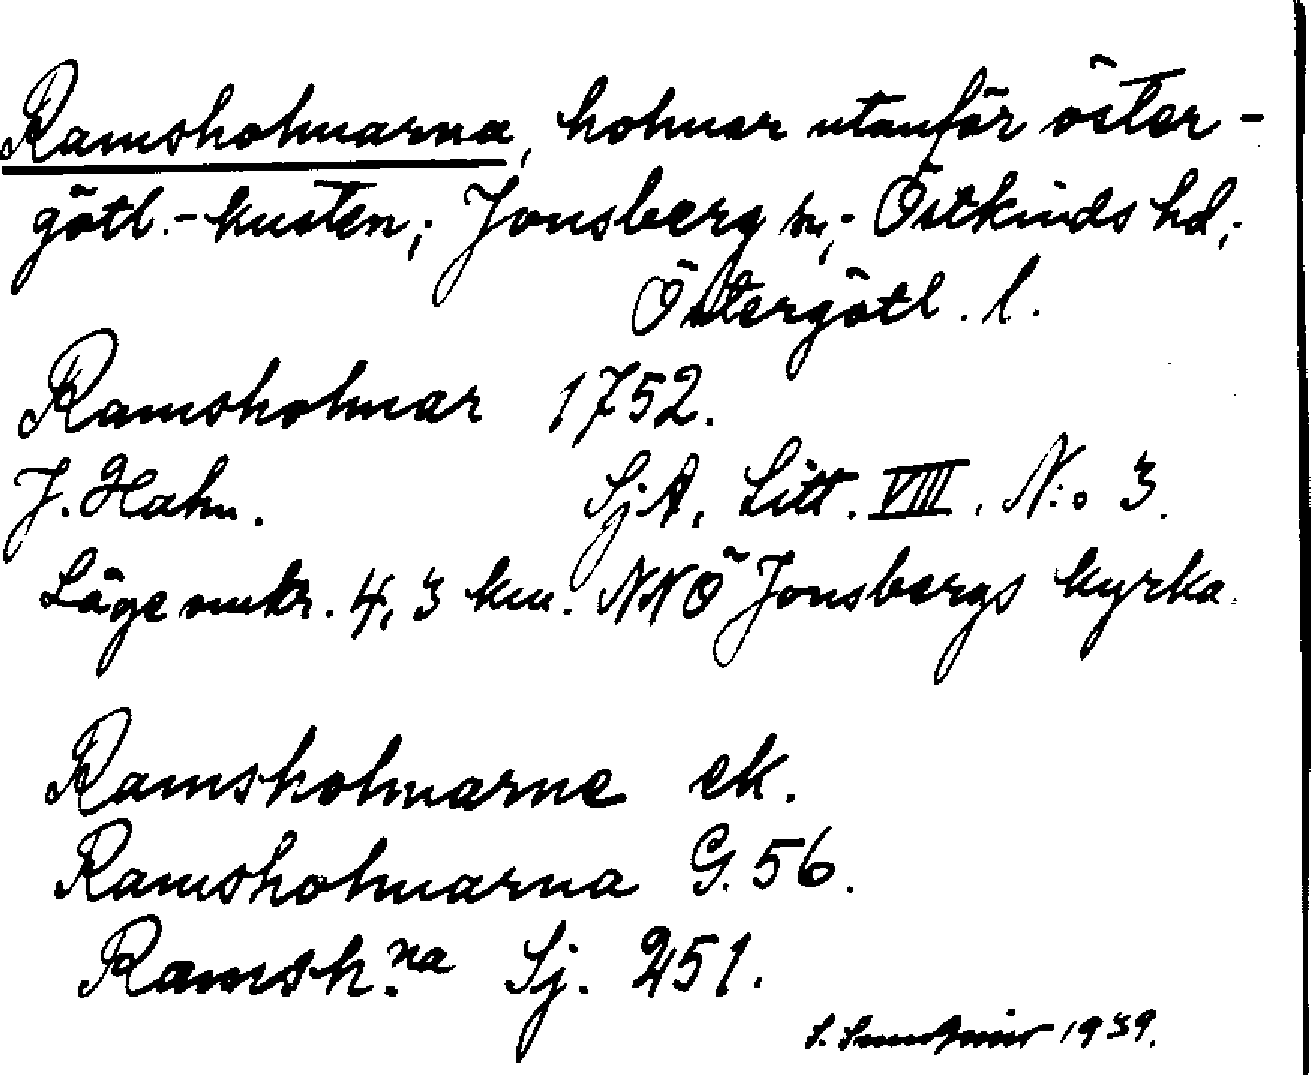 Ramsholmarna, holmar utanför öster-
götl.-kusten; Jonsberg sn; Östkinds hd;
Östergötl. l.
Ramsholmar 1752.
J. Hahn. SjA, Litt. VIII. N:o 3.
Läge omkr. 4,3 km. NNÖ Jonsbergs kyrka.
Ramsholmarne ek.
Ramsholmarna G. 56.
Ramsh.na Sj. 251.
S. 1939.